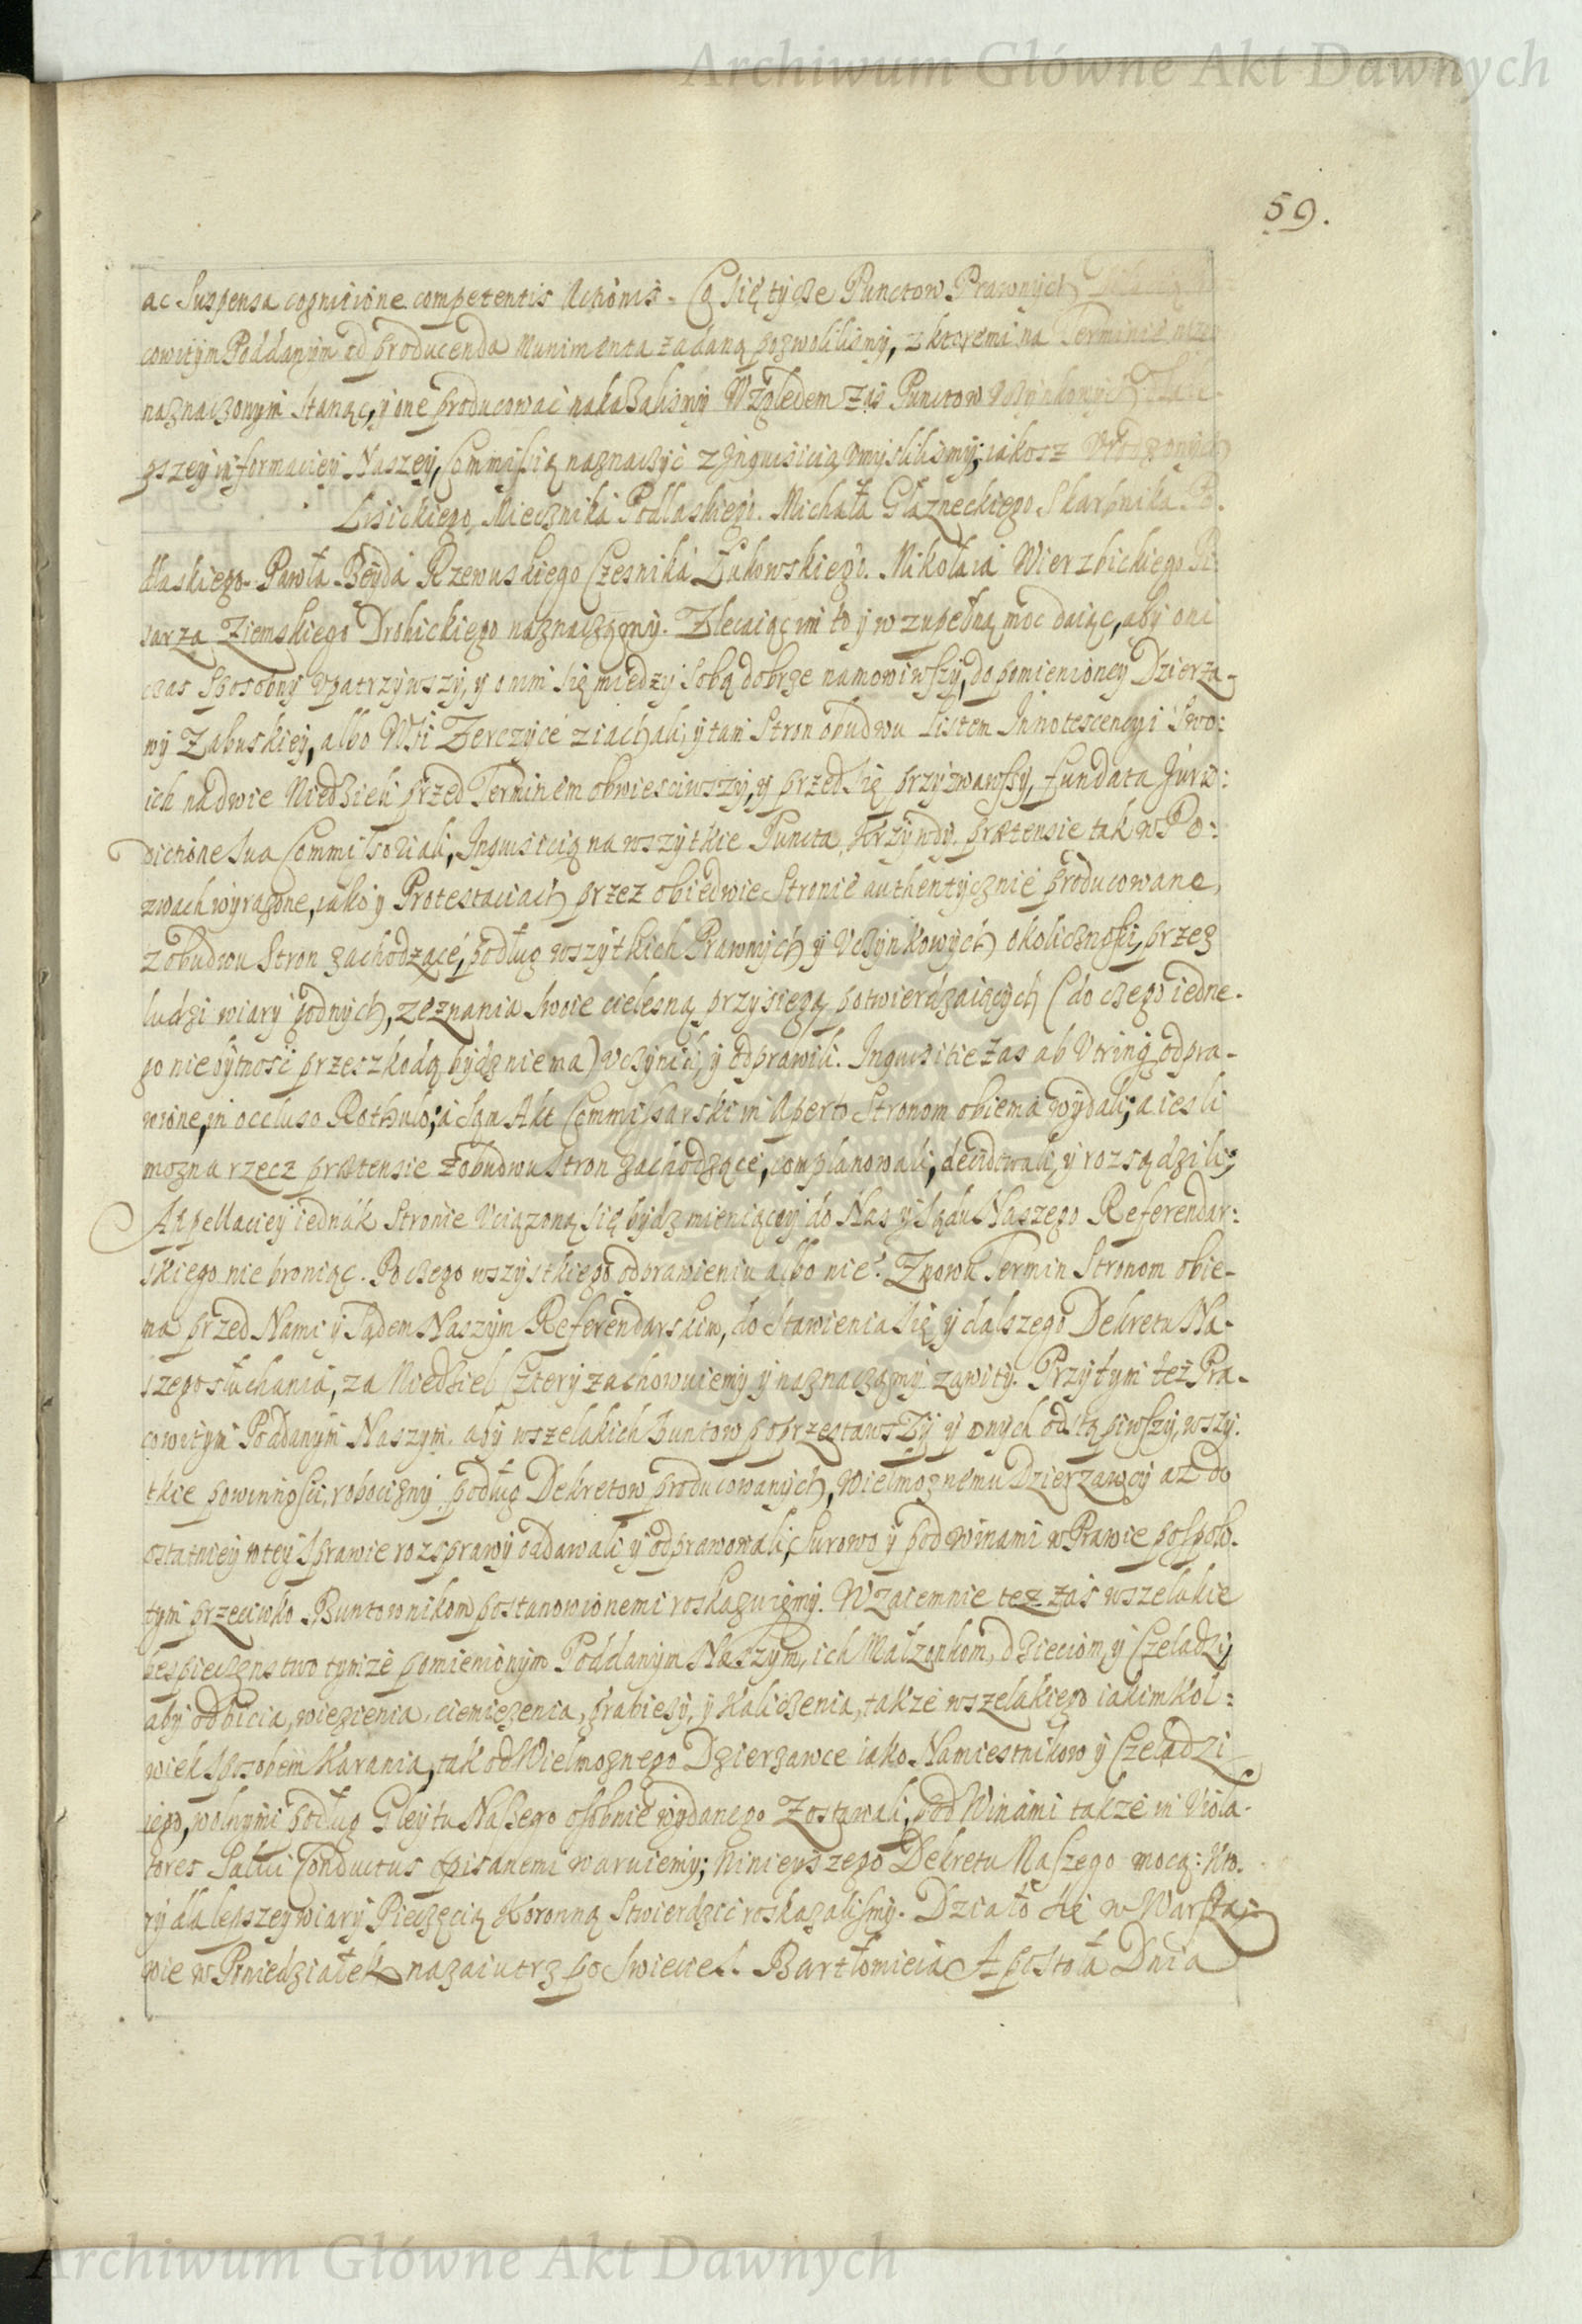 Archiwum Główne Akt Dawnych
59.
ac suspensa cognitione competentis Actionis. Co się tycze Punctow Prawnych
cowitym Poddanym ad producenda Munimenta żądaną pozwolilismy, z ktoremi na Terminie niżey
naznaczonym stanąc, y one producowac nakazalismy. Względem zas Punctow Uczynkowych dla le-
pszey informaciey Naszey, Commissią naznaczyć z Inquisicią umyslilismy; iakosz Urodzonych
Lisickiego, Miecznika Podlaskiego. Michała Głazneckiego Skarbnika Po.
dlaskiego. Pawła Beyda Rzewuskiego Czesnika Łukowskiego. Mikołaia Wierzbickiego Pi:
sarza Ziemskiego Drohickiego naznaczamy. Zlecaiąc im to y w zupełną moc daiąc, aby oni
czas sposobny upatrzywszy, y o nim się miedzy sobą dobrze namowiwszy, do pomienioney Dzierza-
wy Zabuskiey, albo Wsi Zerczyce ziachali, y tam Stron obudwu Listem Innotescencyi swo:
ich na dwie Niedzieli przed Terminem obwiesciwszy, y przed się przyzwawszy, fundata Juris:
dictione sua Commissoriali, Inquisicią na wszytkie Puncta, Krzywdy, prætensie tak w Po:
zwach wyrażone, iako y Protestaciach przez obiedwie Stronie authentycznie producowane,
z obudwu Stron zachodzące, podług wszytkich Prawnych y Uczynkowych okolicznosci, przez
ludzi wiary godnych, zeznania swoie cielesną przysięgą potwierdzaiących (do czego iedne-
go niebytność przeszkodą bydz niema) uczynili, y odprawili. Inquisitie zas ab utrinq odpra-
wione, in occluso Rothulo; a sąn Akt Commissarski in Aperto Stronom obiema wydali; a iesli
mozna rzecz prætensie z obudwu Stron zachodzące, complanowali, decidowali, y rozsądzili;
Appellaciey iednak Stronie uciązoną się bydz mieniącey do Nas y Sądu Naszego Referendar:
skiego nie broniąc. Po czego wszystkiego odprawieniu albo nie. Znowu Termin Stronom obie-
ma przed Nami y Sądem Naszym Referendarskim, do stawienia się y dalszego Dekretu Na-
szego słuchania, za Niedziel Cztery zachowuiemy y naznaczamy zawity. Przytym też Pra-
cowitym Poddanym Naszym, aby wszelakich buntow poprzestawszy y onych odstąpiwszy, wszy:
tkie powinnosci, robocizny podług Dekretow producowanych, Wielmoznemu Dzierzawcy az do
ostatniey w tey sprawie rozsprawy oddawali y odprawowali, Surowo y pod winami w Prawie pospoli-
tym przeciwko Buntownikom postanowionemi roskazuiemy. Wzaiemnie tez zas wszelakie
bespieczenstwo tymze pomienionym Poddanym Naszym, ich Małzonkom, dzieciom, y Czeladzi,
aby od bicia, więzienia, ciemiężenia, grabiezy, y kaliczenia, także wszelakiego iakimkol:
wiek sposobem karania, tak od Wielmoznego Dzierzawce iako Namiestnikow y Czeladzi
iego, wolnymi podług Gleytu Naszego osobnie wydanego zostawali, pod Winami także in Viola-
tores Salui Conductus opisanemi waruiemy; Ninieyszego Dekretu Naszego mocą: Kto.
ry dla lepszey wiary Pieczęcią Koronną Stwierdzic roskazalismy. Działo się w Warsza-
wie w Poniedziałek nazaiutrz po Swięcie S. Bartłomieia Apostoła Dnia
Archiwum Główne Akt Dawnych